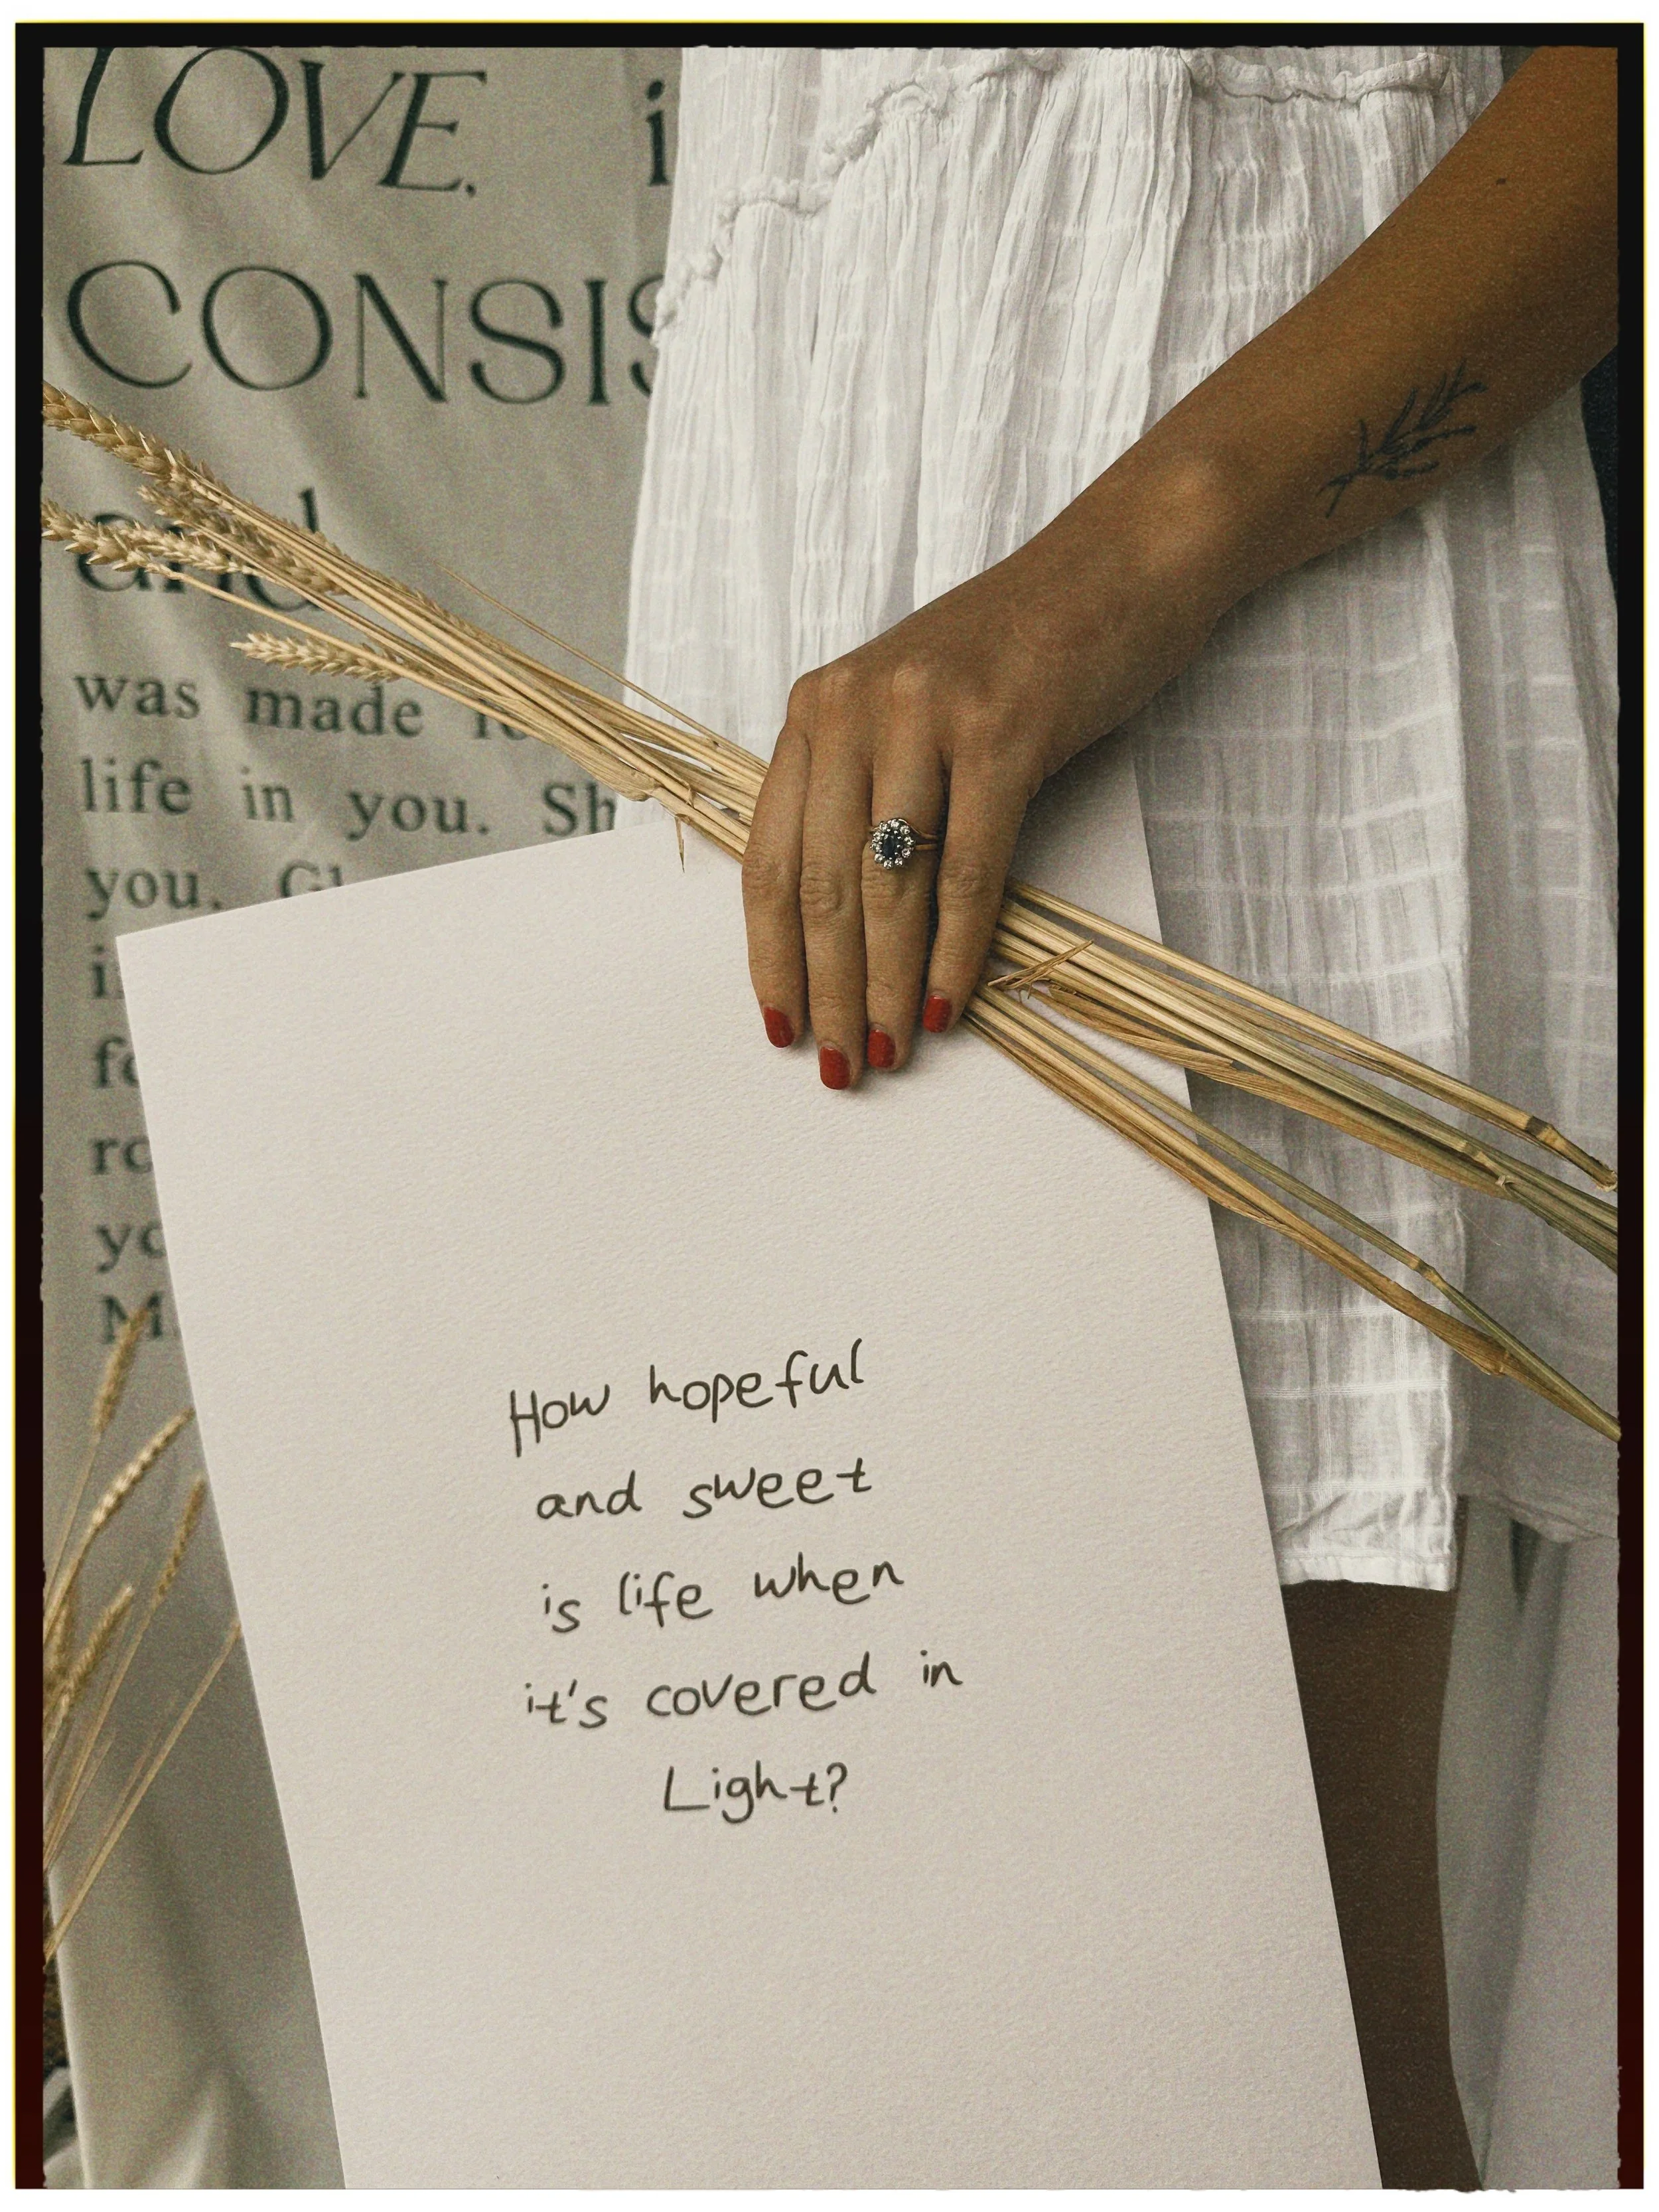 LOVE.
CONSIS
and
was made
life in you. Sh
you.
How hopeful
and sweet
is life when
it's covered in
Light?